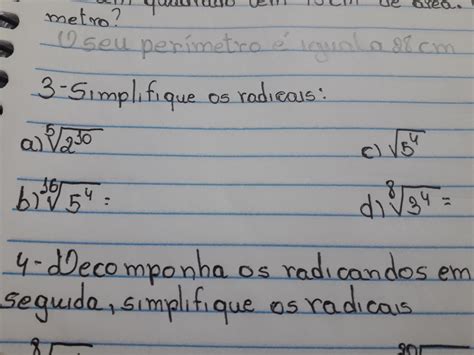 um quadrado tem de área.
metro?
O seu perímetro é igual a 28 cm
3-Simplifique os radicais:
a) ⁵√2³⁰ c) √5⁴
b) ¹⁶√5⁴ = d) ⁸√3⁴ =
4-Decomponha os radicandos em
seguida, simplifique os radicais